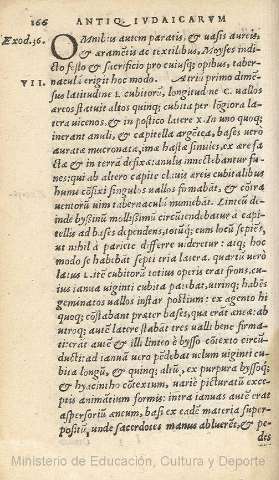 166 ANTIQ. IVDAICARVM
Exod. 36.
OMnibus autem paratis, & uasis aureis,
& aramẽtis ac textilibus, Moyses indi
cto festo & sacrificio pro cuiusq; opibus, taber-
VII. naculũ erigit hoc modo. Atrij primo dimen
sus latitudinẽ L. cubitorũ, longitudinẽ C. uallos
arcos statuit altos quinq; cubita per lõgiora la
tera uicenos, & in postico latere X. In uno quoq;
inerant anuli, & capitella argẽtea, bases uerò
auratæ mucronatæ, ima hastæ similes, ex ære fa
ctæ & in terrã defixæ: anulis innectebantur fu-
nes: qui ab altero capite clauis æreis cubitalibus
humi cõfixi singulos uallos firmabãt, & cõtra
uentorũ uim tabernaculũ muniebãt. Linteũ de
inde byssinũ mollissimũ circũendebatur à capi-
tellis ad bases dependens, totũq; eum locũ sepiẽs,
ut nihil à pariete differre uideretur: atq; hoc
modo se habebãt septi tria latera. quarti uerò
latus L. itẽ cubitorũ totius operis erat frons. cu-
ius ianua uiginti cubita patebat, utrinq; habẽs
geminatos uallos instar postium: ex agento hi
quoq; cõstabant præter bases, quæ erãt æneæ: ab
utroq; autẽ latere stabãt tres ualli bene firma-
ti: erat autẽ & illi linteo è bysso cõtexto circũ-
ducti: at ad ianuã uerò pẽdebat uelum uiginti cu-
bita longũ, & quinq; altũ, ex purpura byssoq;
& hyacintho cõtextum, uarie picturatũ exce-
ptis animatium formis: intra ianuas autẽ erat
aspersoriũ æneum, basi ex eadẽ materia super-
positũ, unde sacerdotes manus abluerẽt, & pe-
dis
Ministerio de Educación, Cultura y Deporte